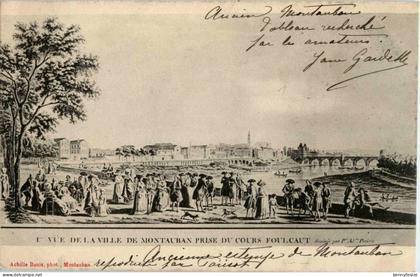 Ancien Montauban
Tableau recherché
par les amateurs.
I<sup>re</sup> VUE DE LA VILLE DE MONTAUBAN PRISE DU COURS FOULCAUT
Achille Bouis, phot., Montauban.
Ancienne estampe de Montauban
reproduit par